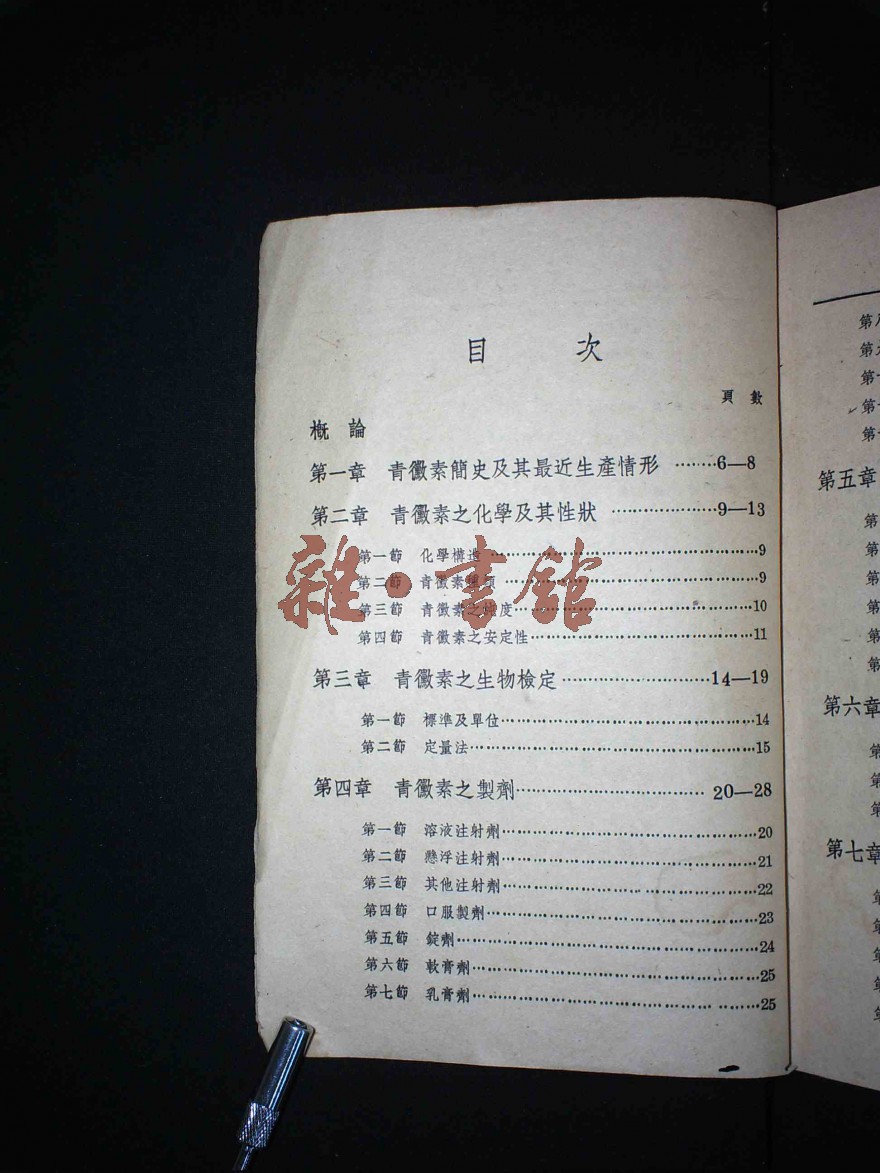 目 次
頁 數
概 論
第一章 青黴素簡史及其最近生產情形 ………6—8
第二章 青黴素之化學及其性狀 …………………9—13
第一節 化學構造 ……………………………………9
第二節 青黴素種類 ……………………………………9
第三節 青黴素之 度……………………………………10
第四節 青黴素之安定性……………………………………11
第三章 青黴素之生物檢定…………………14—19
第一節 標準及單位……………………………………14
第二節 定量法……………………………………15
第四章 青黴素之製劑……………………… 20—28
第一節 溶液注射劑……………………………………20
第二節 懸浮注射劑……………………………………21
第三節 其他注射劑……………………………………22
第四節 口服製劑……………………………………23
第五節 錠劑……………………………………24
第六節 軟膏劑……………………………………25
第七節 乳膏劑……………………………………25
雜·書館
第
第
第十
第十
第十
第五章
第
第
第
第
第
第
第六章
第
第
第
第七章
第
第
第
第
第